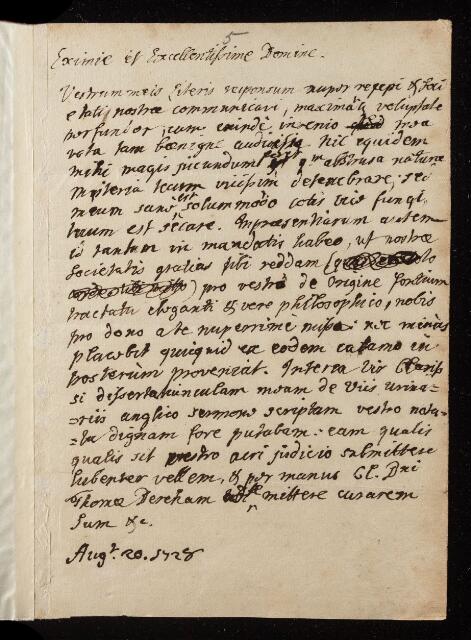 5
Eximie et Excellentissime Domine.
Vestrum meis Literis responsum nuper recepi & Soci
etati nostræ communicavi, maximâq voluptate
perfundor, cum exinde invenio mea
vota tam benigne audita nil equidem
mihi magis jucundum est qm abstrusa naturæ
mysteria tecum vicissim detenebrare, sed
meum sane est solummodo cotis vice fungi
tuum est secare. Impræsentiarum autem
id tantum in mandatis habeo, ut nostræ
Societatis gratias tibi reddam
pro vestro de Origine fontium
tractatu eleganti & vere philosophico, nobis
pro dono a te nuperrime misso. nec minus
placebit quicquid ex eodem calamo in
posterum proveniat. Interea Vir Clariss
si dissertatiunculam meam de Viis urina-
riis anglico sermone scriptam vestro nota-
tu dignam fore putabam. eam qualis
qualis sit vestro acri judicio submittere
lubenter vellem, & per manus Cl. Dni
Thomæ Dereham mittere curarem
Sum &c.
Augt. 20. 1728